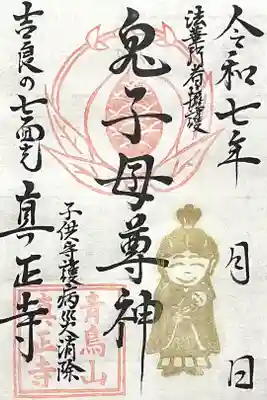 令和七年 月 日
法華行者擁護
鬼子母尊神
子供守護病災消除
吉良の七面
真正寺
青鳥山
眞正寺